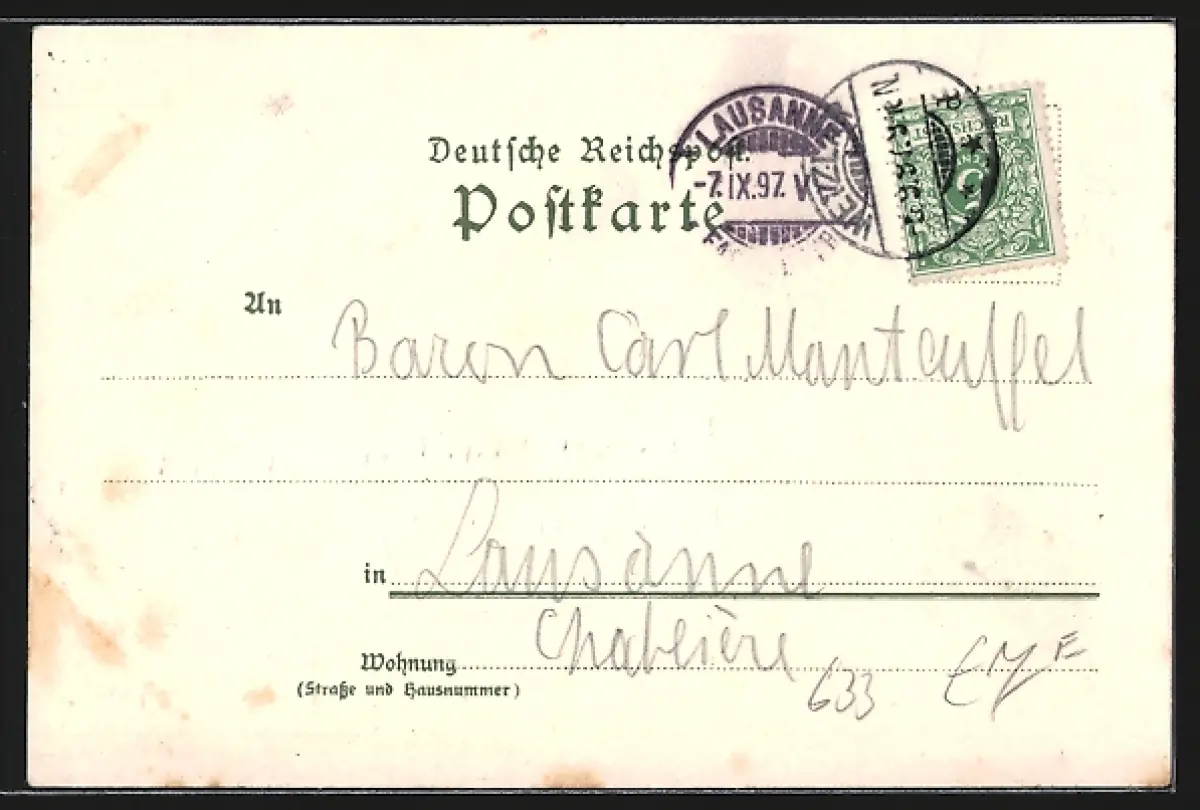 Deutsche Reichspost.
Postkarte
LAUSANNE
-7.IX.97. V
An Baron Carl Manteuffel
in Lausanne
Wohnung Chablière
(Straße und Hausnummer)
633